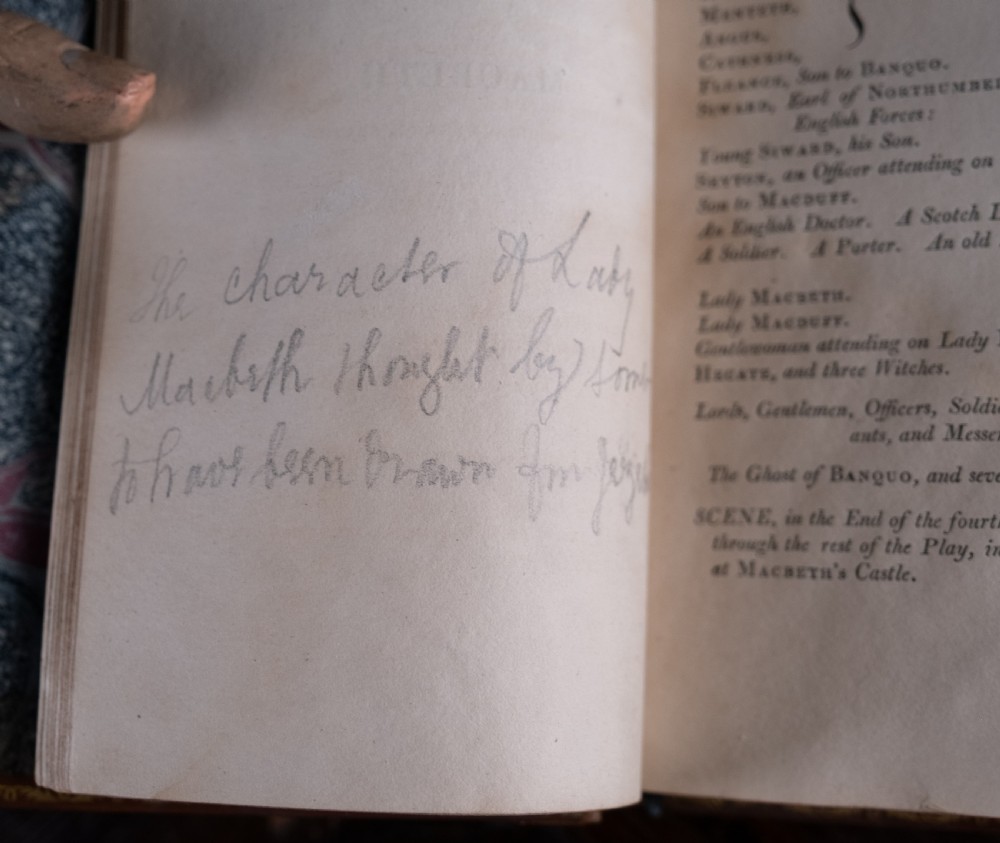 The character of Lady
Macbeth thought by some
to have been drawn
MENTETH,
ANGUS,
CATHNESS,
FLEANCE, Son to BANQUO.
SIWARD, Earl of NORTHUMBER
English Forces:
Young SIWARD, his Son.
SEYTON, an Officer attending on
Son to MACDUFF.
An English Doctor. A Scotch D
A Soldier. A Porter. An old
Lady MACBETH.
Lady MACDUFF.
Gentlewoman attending on Lady
HECATE, and three Witches.
Lords, Gentlemen, Officers, Soldie
ants, and Messen
The Ghost of BANQUO, and seve
SCENE, in the End of the fourth
through the rest of the Play, in
at MACBETH's Castle.